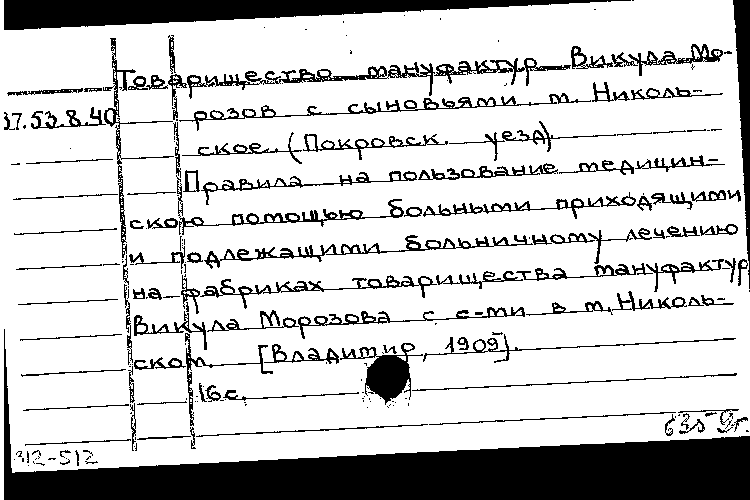 Товарищество мануфактур Викула Мо-
37.53.8.40
розов с сыновьями м. Николь-
ское. (Покровск. уезд).
Правила на пользование медицин-
скою помощью больными приходящими
и подлежащими больничному лечению
на фабриках товарищества мануфактур
Викула Морозова с с-ми в м. Николь-
ском. [Владимир, 1909].
16 с.
312-512